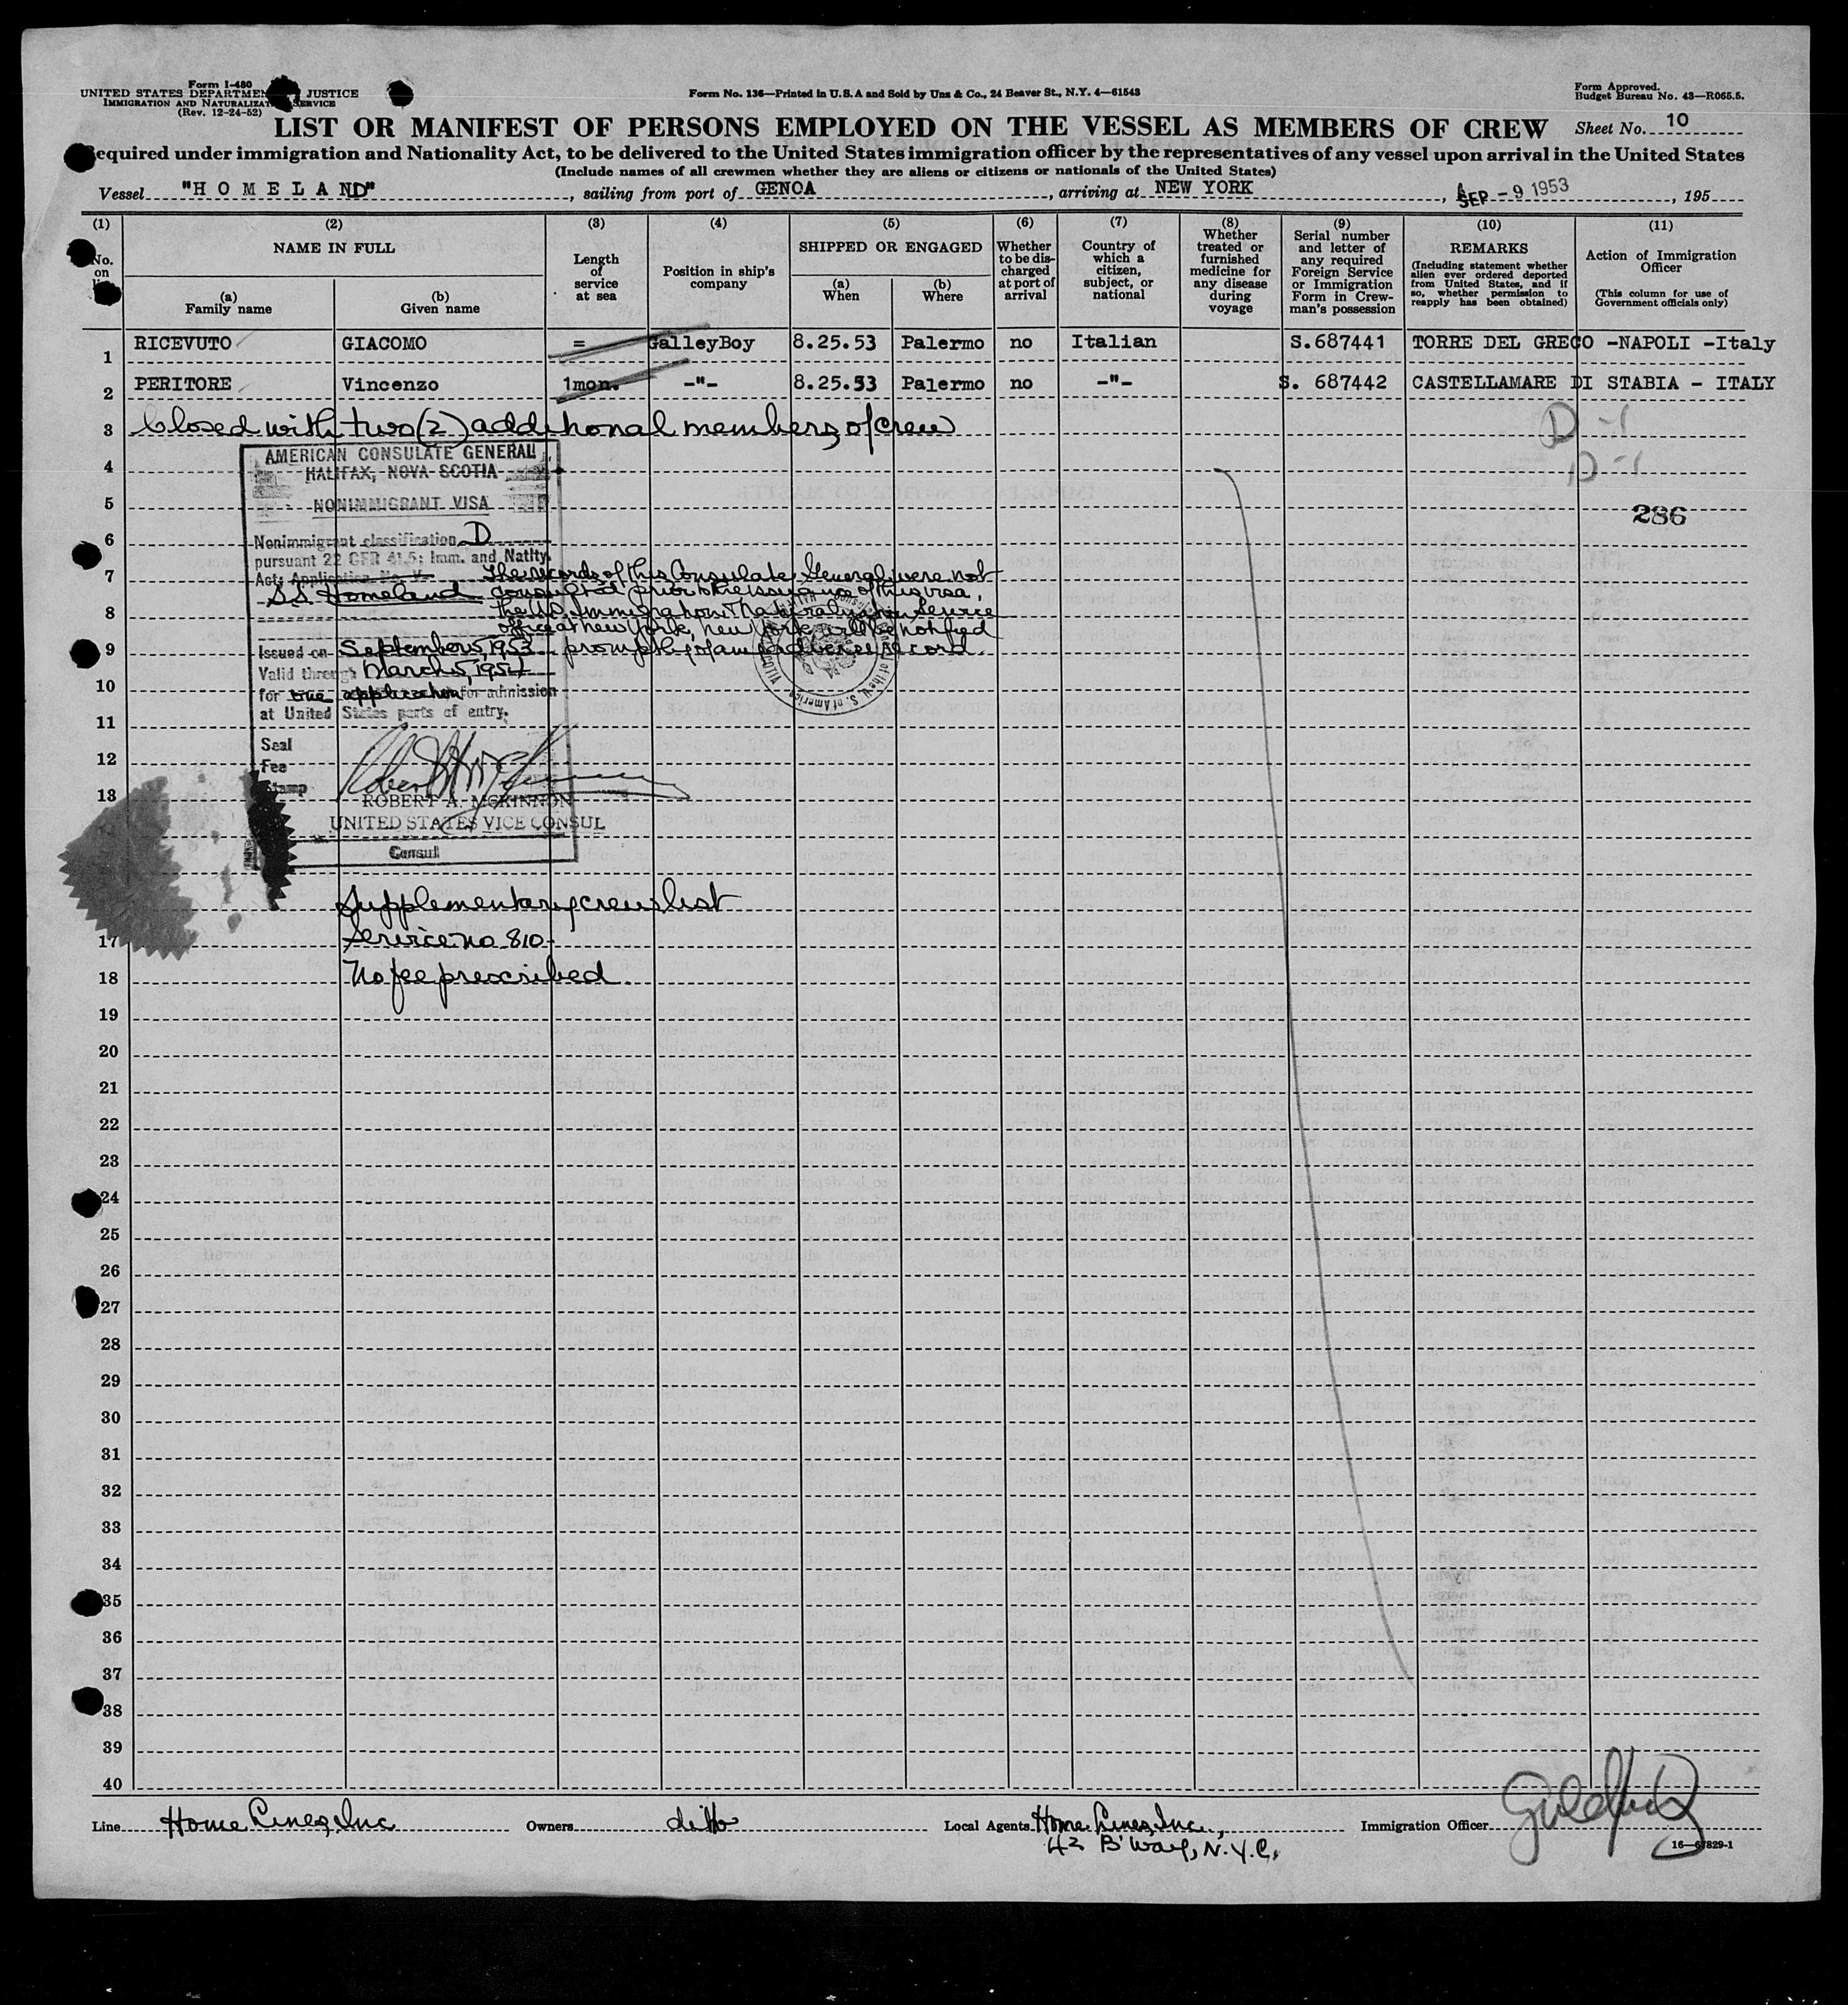 Form I-480
UNITED STATES DEPARTMENT JUSTICE
IMMIGRATION AND NATURALIZAT SERVICE
(Rev. 12-24-52)
Form No. 136—Printed in U.S.A and Sold by Unz & Co., 24 Beaver St., N.Y. 4—61543
Form Approved.
Budget Bureau No. 43—R065.5.
LIST OR MANIFEST OF PERSONS EMPLOYED ON THE VESSEL AS MEMBERS OF CREW
Sheet No. 10
equired under immigration and Nationality Act, to be delivered to the United States immigration officer by the representatives of any vessel upon arrival in the United States
(Include names of all crewmen whether they are aliens or citizens or nationals of the United States)
Vessel "H O M E L A ND", sailing from port of GENOA, arriving at NEW YORK, SEP - 9 1953, 195
(1) (2) (3) (4) (5) (6) (7) (8) (9) (10) (11)
No. on
NAME IN FULL
(a) Family name
(b) Given name
Length of service at sea
Position in ship's company
SHIPPED OR ENGAGED
(a) When
(b) Where
Whether to be discharged at port of arrival
Country of which a citizen, subject, or national
Whether treated or furnished medicine for any disease during voyage
Serial number and letter of any required Foreign Service or Immigration Form in Crewman's possession
REMARKS
(Including statement whether alien ever ordered deported from United States, and if so, whether permission to reapply has been obtained)
Action of Immigration Officer
(This column for use of Government officials only)
1 RICEVUTO GIACOMO = GalleyBoy 8.25.53 Palermo no Italian S.687441 TORRE DEL GRECO -NAPOLI -Italy
2 PERITORE Vincenzo 1mon. -"- 8.25.53 Palermo no -"- S. 687442 CASTELLAMARE DI STABIA - ITALY
3 Closed with two (2) additional members of crew D -1
4 D -1
5 286
AMERICAN CONSULATE GENERAL
HALIFAX, NOVA SCOTIA
NONIMMIGRANT VISA
6
Nonimmigrant classification D
pursuant 22 CFR 41.5; Imm. and Natlty.
7
Act; Application No. V-
S.S. Homeland
The records of this Consulate General were not
consulted prior to the issuance of this visa,
8
the U.S. Immigration & Naturalization Service
office at New York, New York will be notified
promptly of any adverse record.
9
Issued on September 5, 1953
Valid through March 5, 1954
10
for one application for admission
at United States ports of entry.
11
Seal
12
Fee
Stamp
13
ROBERT A. MCKINNON
UNITED STATES VICE CONSUL
Consul
Supplementary crew list
17 Service no 810-
18 No fee prescribed.
19
20
21
22
23
24
25
26
27
28
29
30
31
32
33
34
35
36
37
38
39
40
Line Home Lines, Inc Owners ditto Local Agents Home Lines, Inc., Immigration Officer
42 B'way, N.Y.C.
16—67829-1